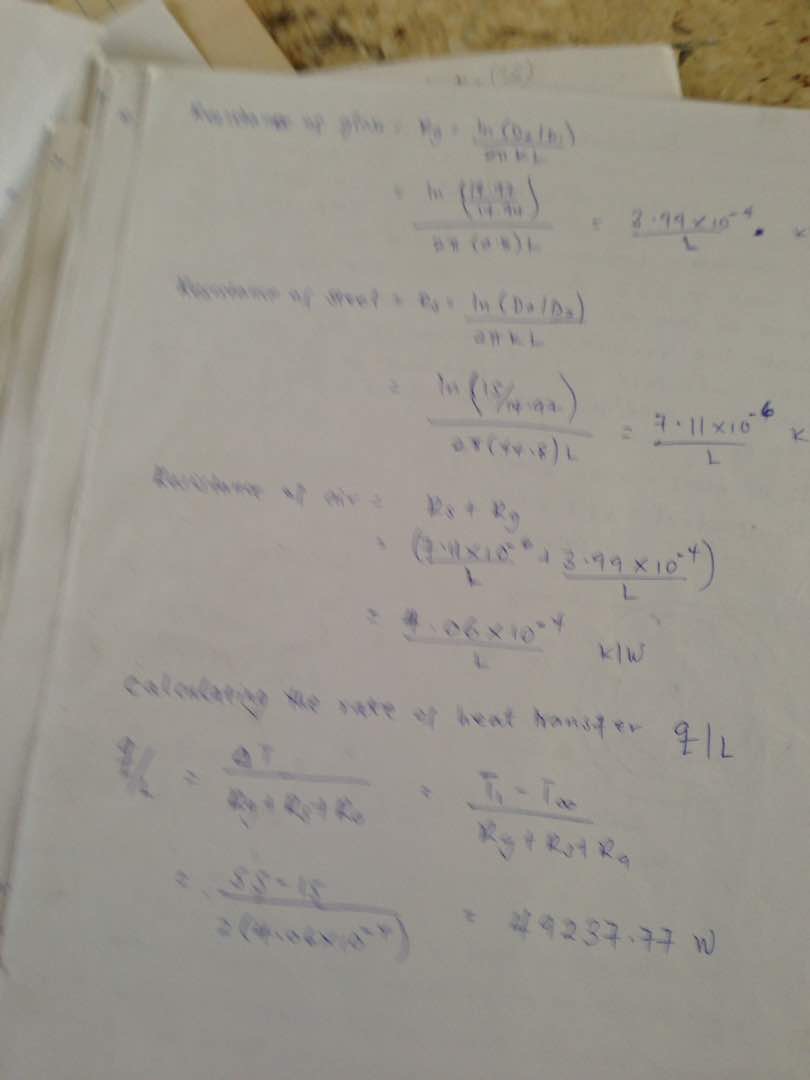 Resistance of glass = Rg = ln(D2/D1) / 2πKL
= ln(14.97/14.94) / 2π(0.8)L = 3.99×10⁻⁴ / L . K
Resistance of steel = Rs = ln(D3/D2) / 2πKL
= ln(15/14.97) / 2π(44.8)L = 7.11×10⁻⁶ / L K
Resistance of air = Rs + Rg
= (7.11×10⁻⁶ / L + 3.99×10⁻⁴ / L)
= 4.06×10⁻⁴ / L K/W
Calculating the rate of heat transfer q/L
q/L = ΔT / Rg+Rs+Ra = T1 - T∞ / Rg+Rs+Ra
= 55-15 / 2(4.06×10⁻⁴) = 49237.77 W